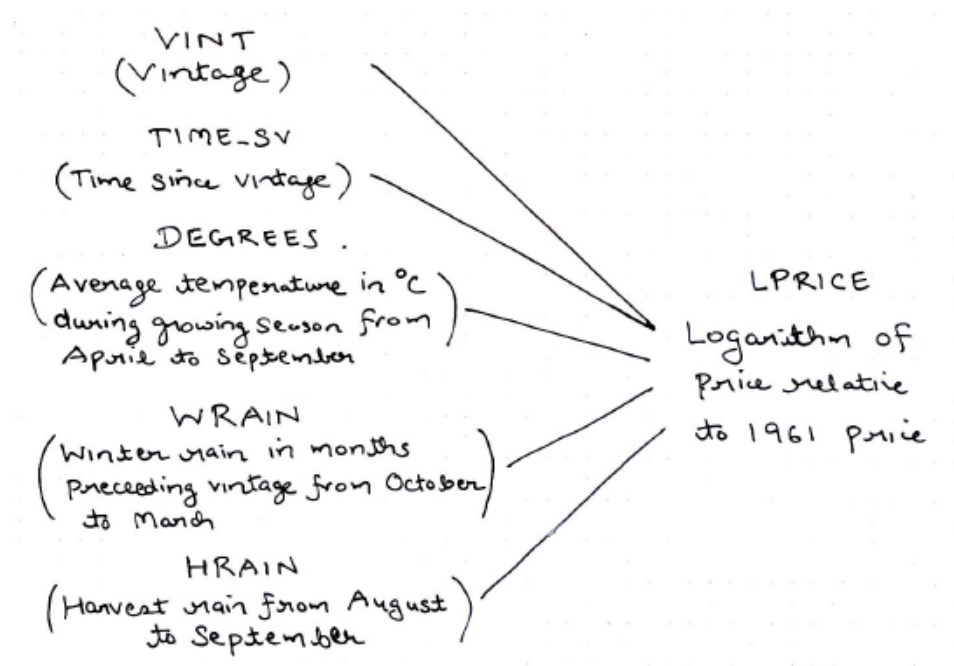 VINT
(Vintage)
TIME_SV
(Time since vintage)
DEGREES.
(Average temperature in °C
during growing season from
April to September)
WRAIN
(Winter rain in months
preceeding vintage from October
to March)
HRAIN
(Harvest rain from August
to September)
LPRICE
Logarithm of
Price relative
to 1961 price